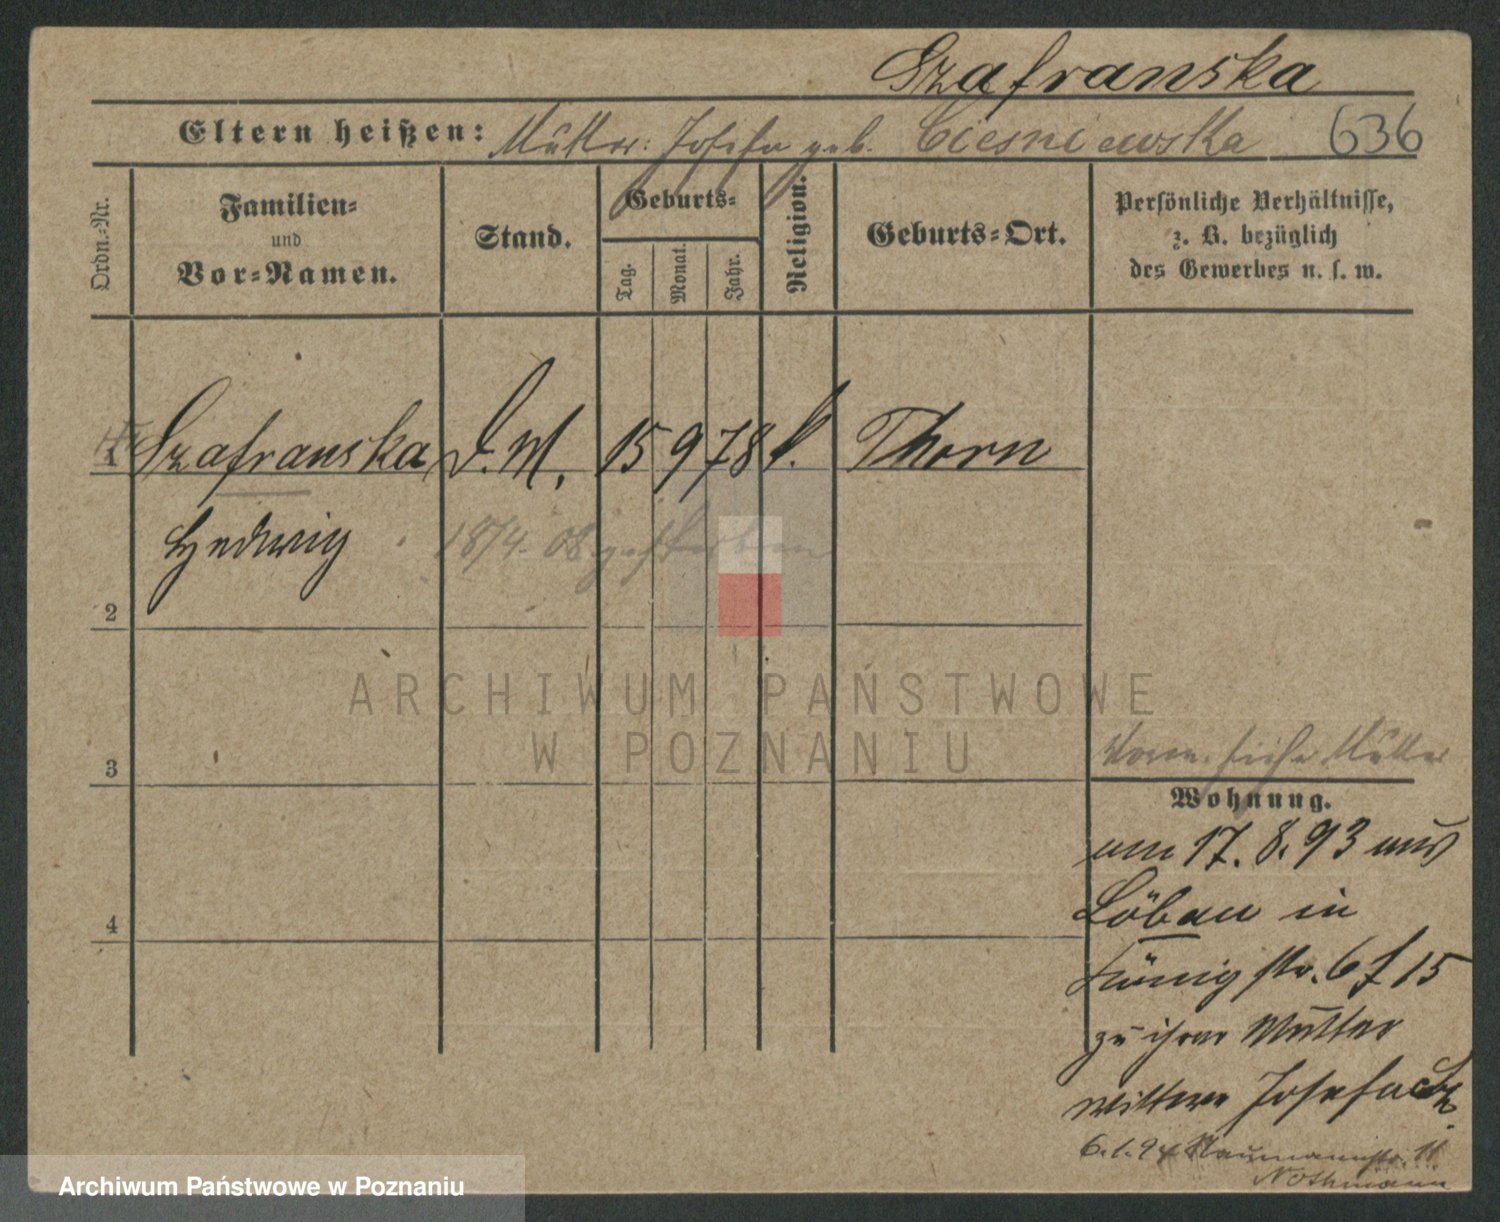 Szafranska
Eltern heißen: Mutter: Josefa geb. Ciesniewska 636
Ordn.-Nr.
Familien-
und
Vor-Namen.
Stand.
Geburts-
Tag.
Monat.
Jahr.
Religion.
Geburts-Ort.
Persönliche Verhältnisse,
z. B. bezüglich
des Gewerbes u. s. w.
1 Szafranska D. M. 15 9 78 k. Thorn
Hedwig
18/4. 08 gestorben
2
3
4
ARCHIWUM PAŃSTWOWE
W POZNANIU
siehe Mutter
Wohnung.
am 17. 8. 93 aus
Löbau in
Königstr. 6 f 15
zu ihrer Mutter
Wittwe Josefa
6.1.94 Naumannstr. 11
Nothmann
Archiwum Państwowe w Poznaniu